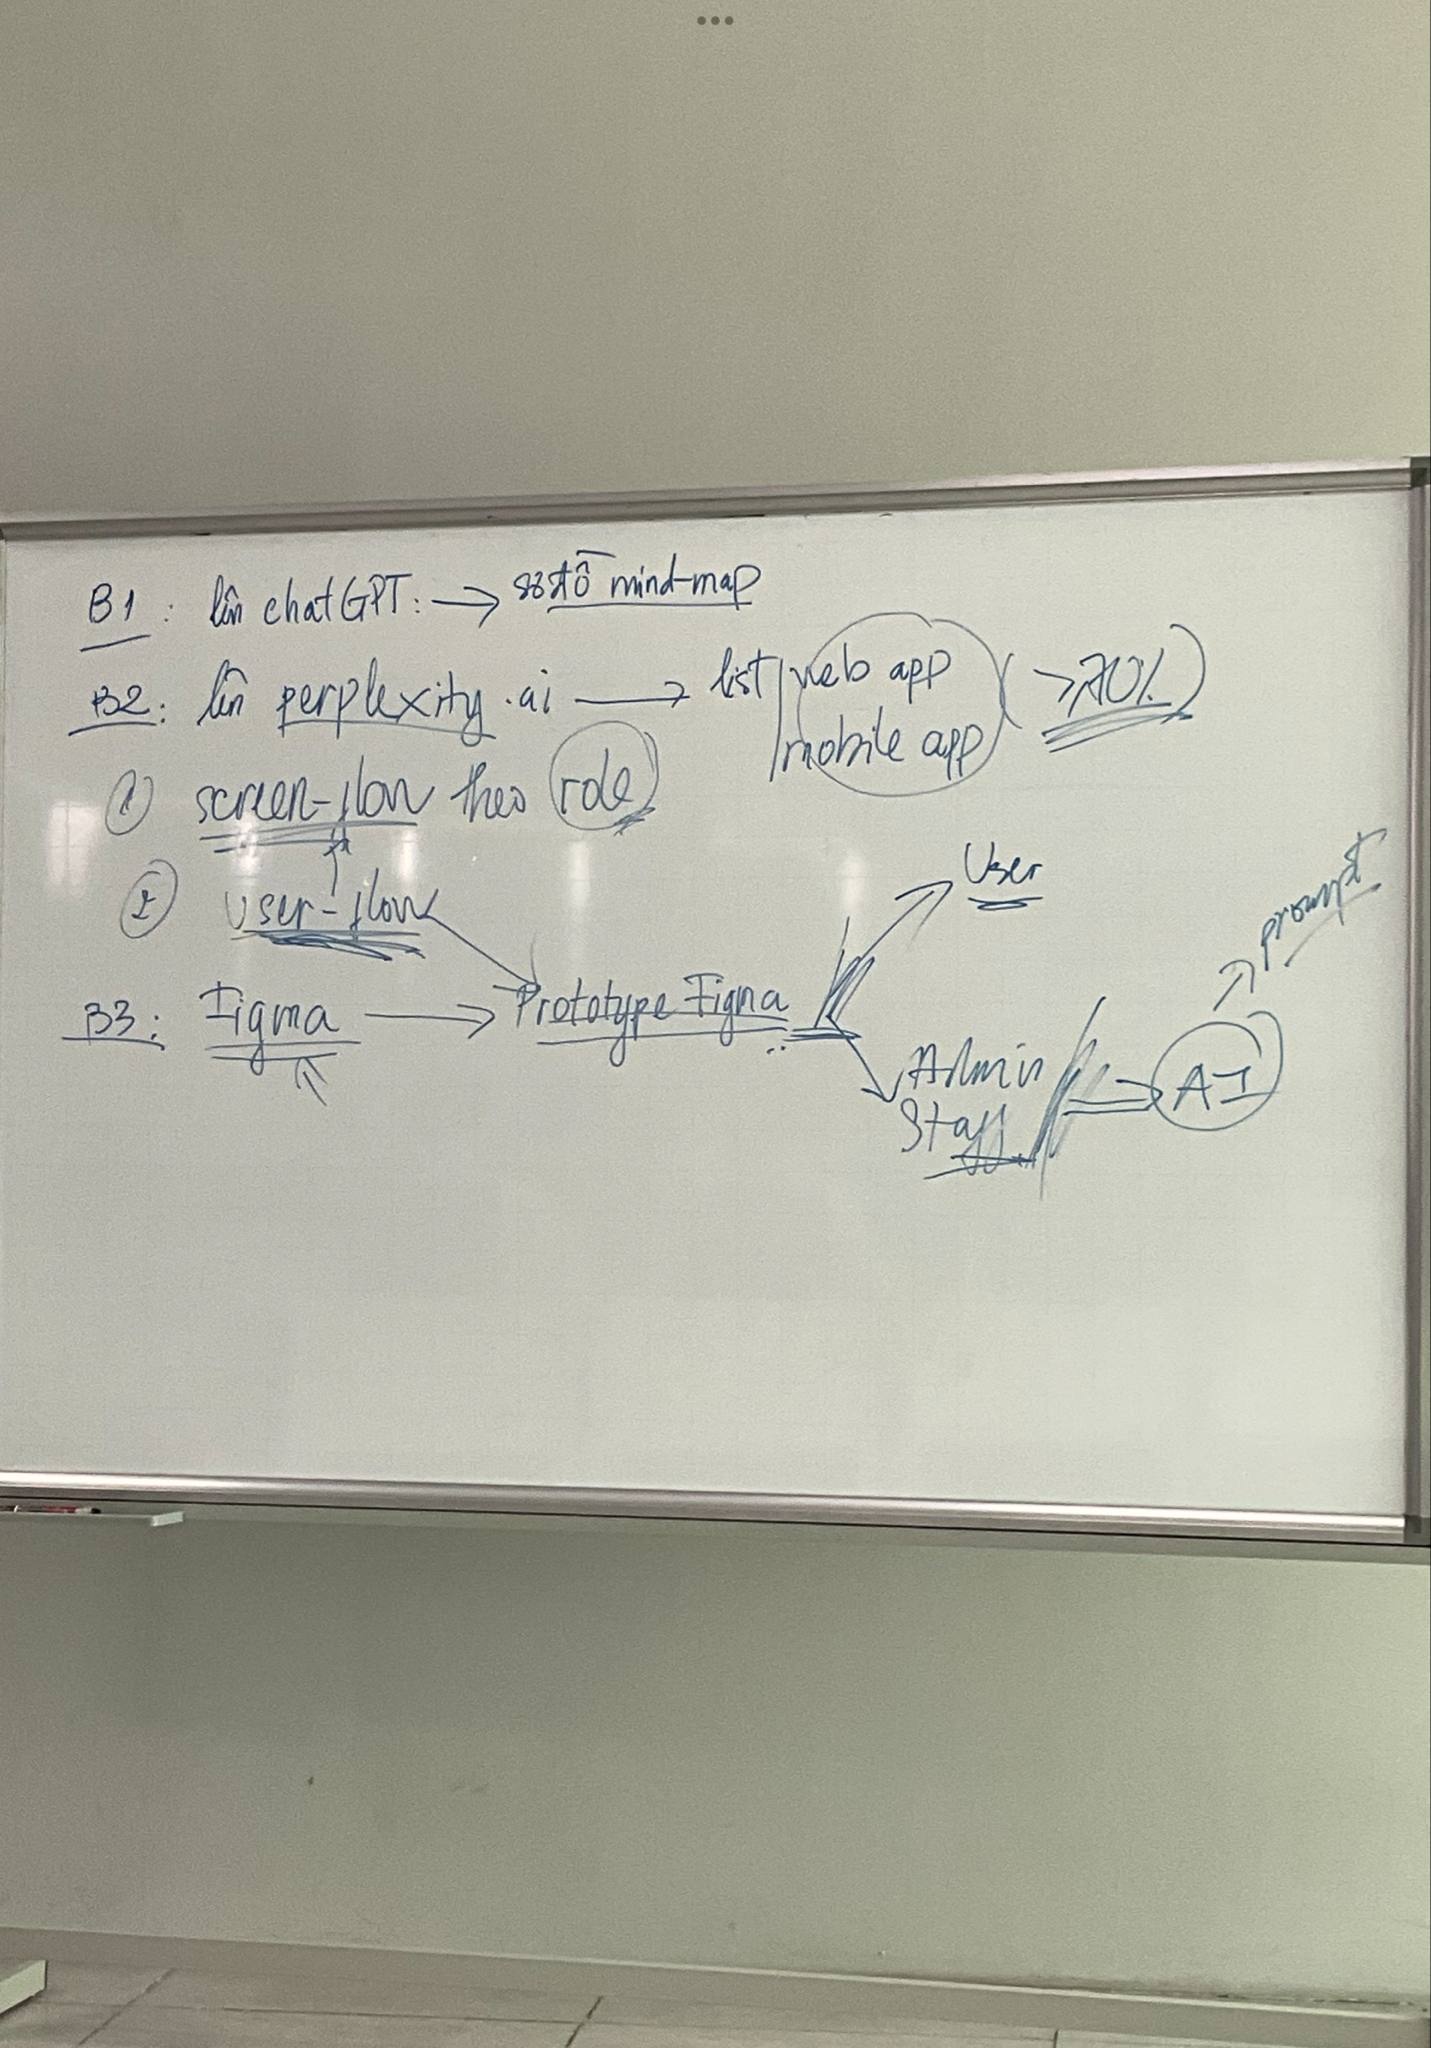 B1: lên chatGPT: → sơ đồ mind-map
B2: lên perplexity.ai → list web app (>70%)
mobile app
① screen-flow theo role
② User-flow
User
prompt
B3: Figma → Prototype Figma
Admin
Staff
AI